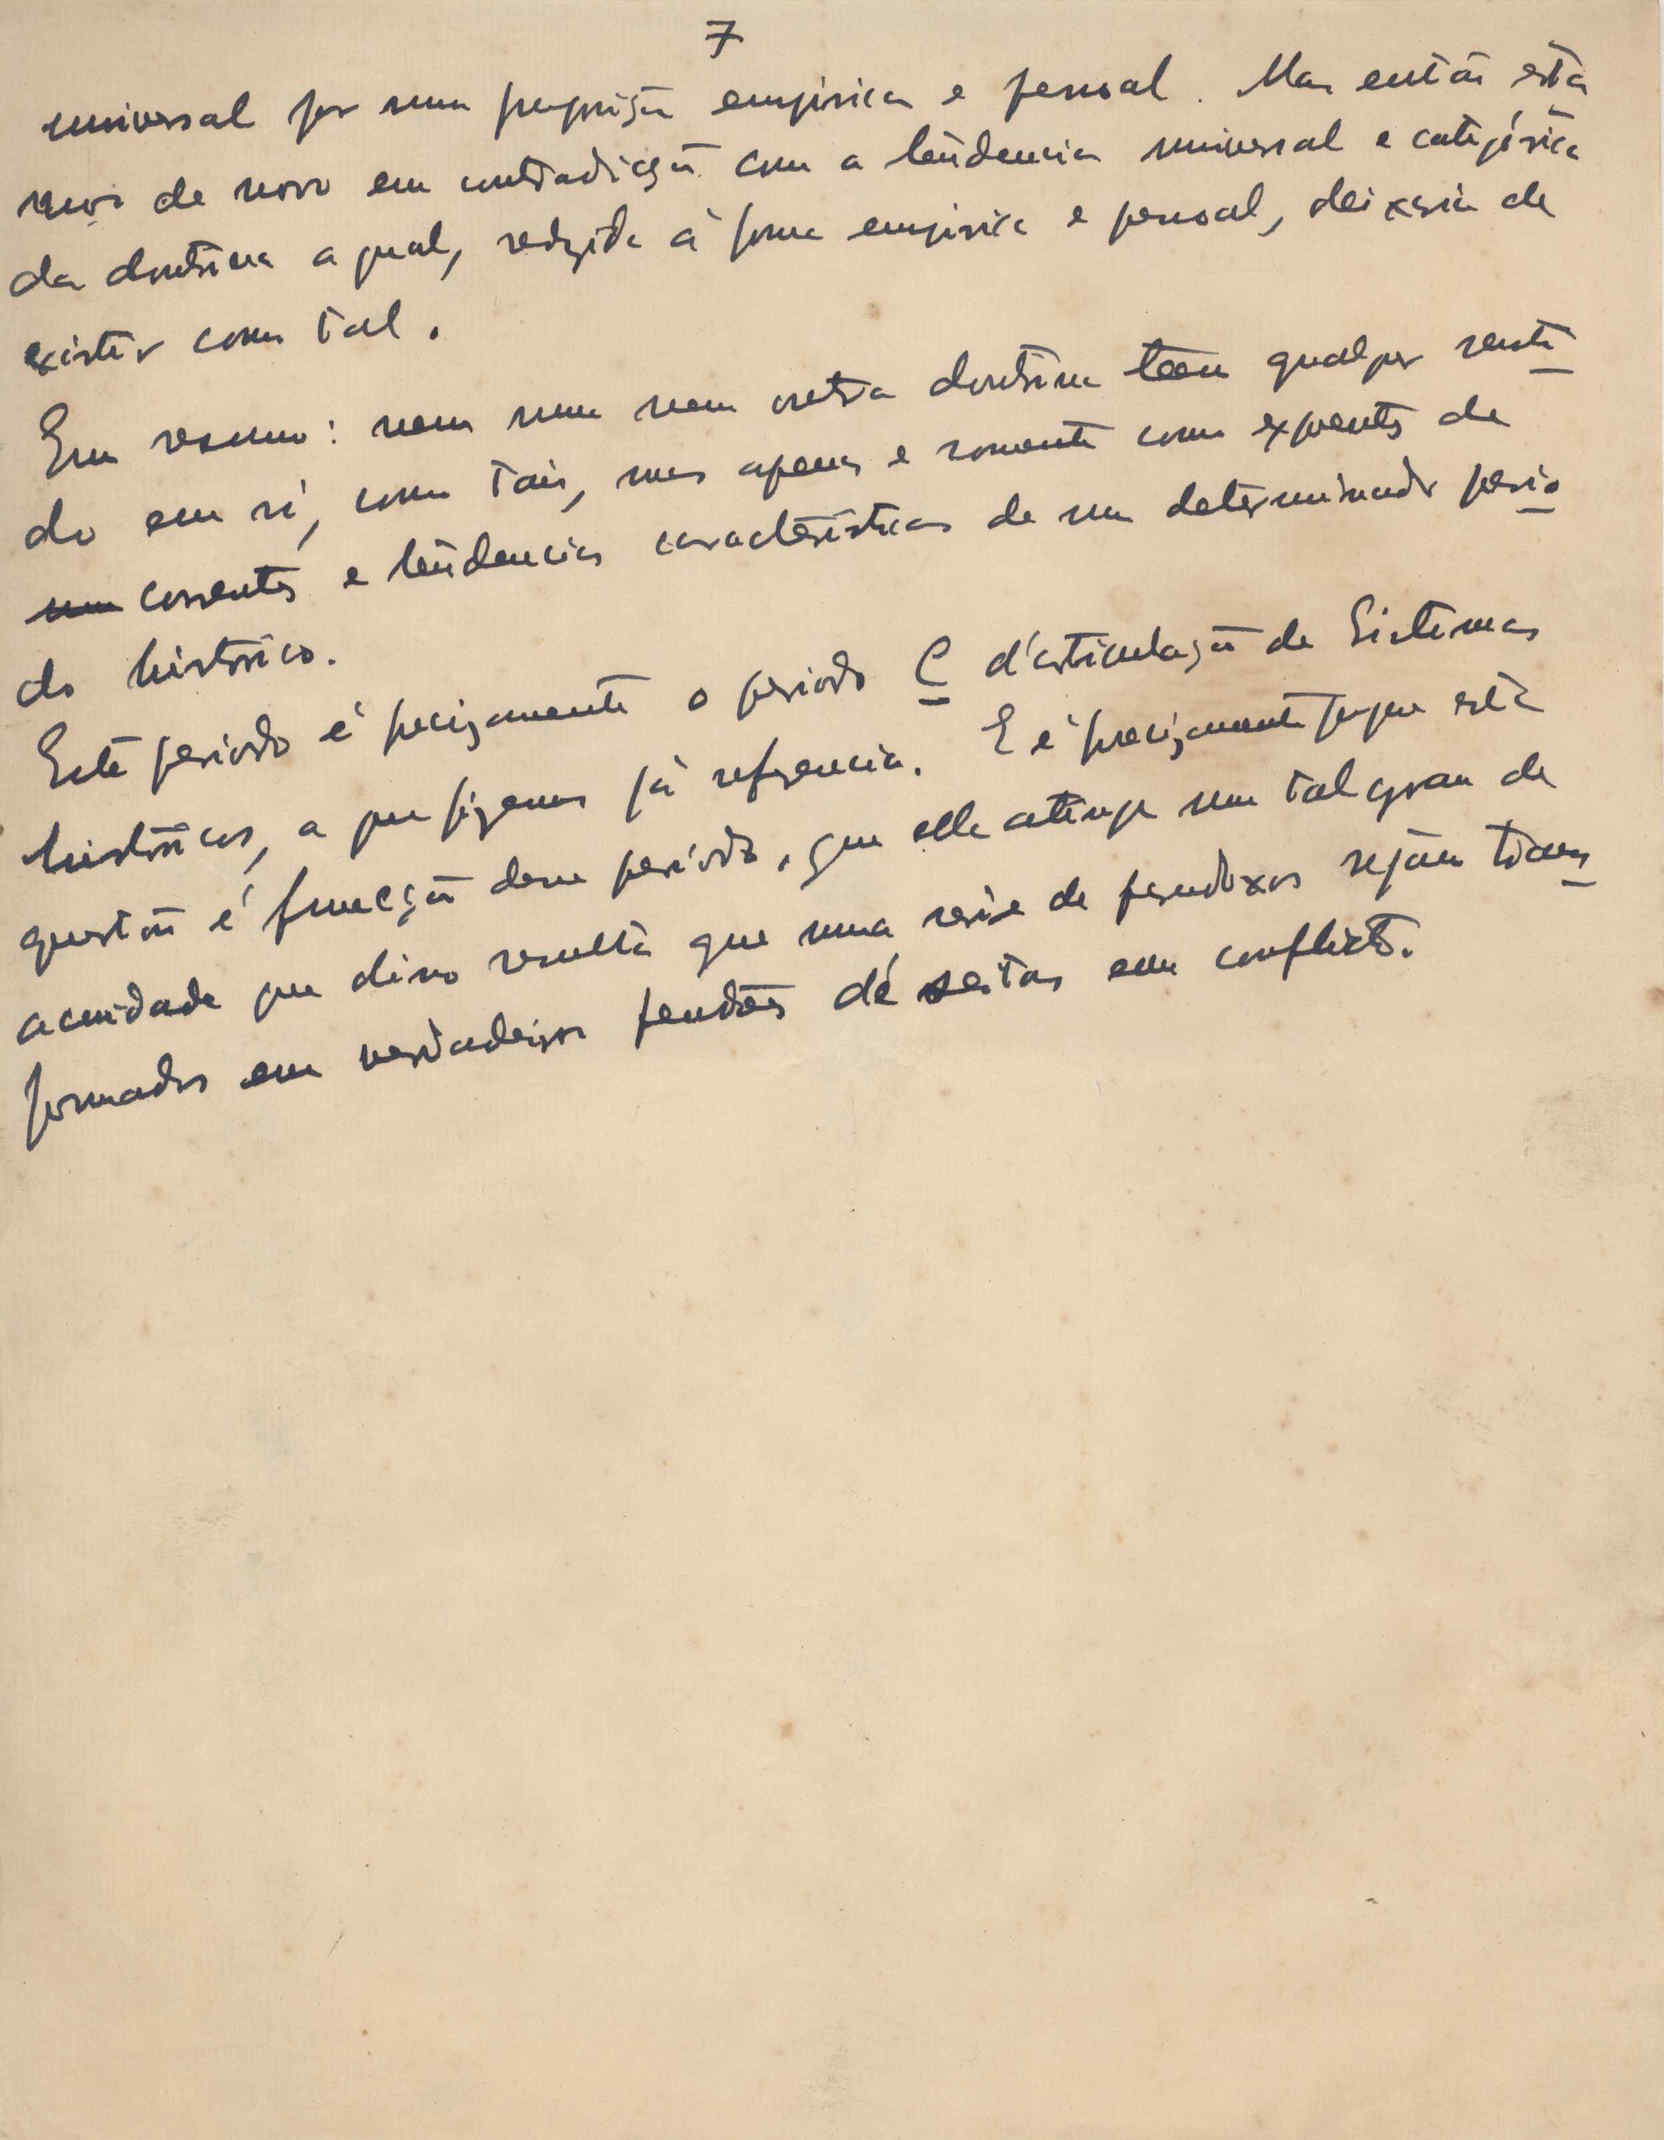 7
universal por uma proposição empirica e pessoal. Mas então está
mos de novo em contradicção com a tendencia universal e categórica
da doutrina a qual, redigida à forma empirica e pessoal, deixaria de
existir como tal.
Em resumo: nem uma nem outra doutrina teem qualquer senti
do em si, como tais, mas apenas e somente como expoentes de
correntes e tendencias caracteristicas de um determinado perio
do historico.
Este periodo é precizamente o periodo C d'articulação de Sistemas
históricos, a que fizemos já referencia. E é precizamente porque esta
questão é funcção desse periodo, que ella atinge um tal grau de
acuidade que disso resulta que uma serie de paradoxos sejam trans
formados em verdadeiros pendões de seitas em conflicto.